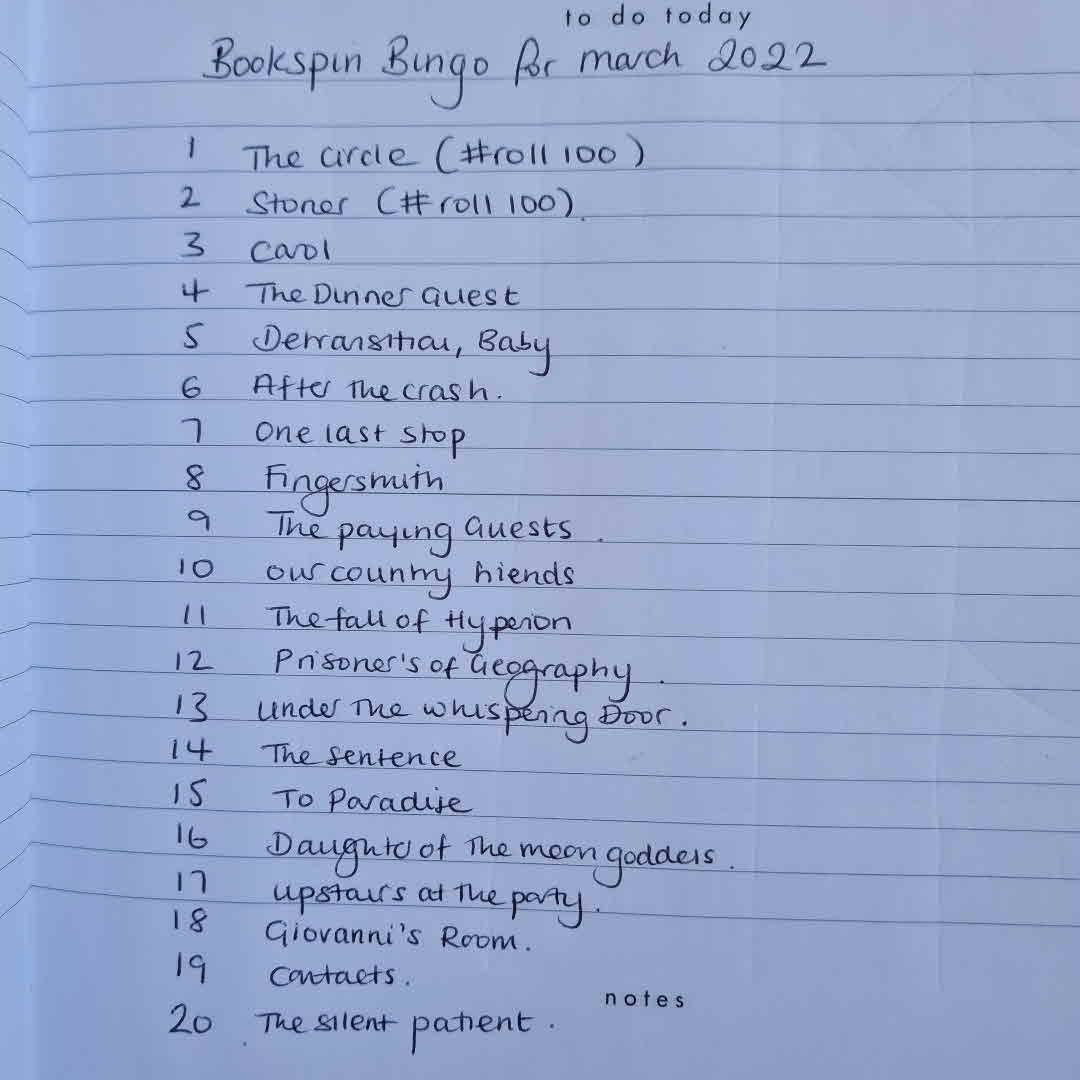 to do today
Bookspin Bingo for march 2022
1 The circle (#roll 100)
2 Stoner (#roll 100).
3 Carol
4 The Dinner Guest
5 Detransition, Baby
6 After the crash.
7 One last stop
8 Fingersmith
9 The paying Guests.
10 our country friends
11 The fall of Hyperion
12 Prisoner's of Geography.
13 under the whispering Door.
14 The sentence
15 To Paradise
16 Daughter of the moon goddess.
17 upstairs at the party.
18 Giovanni's Room.
19 Contacts.
notes
20 The silent patient.